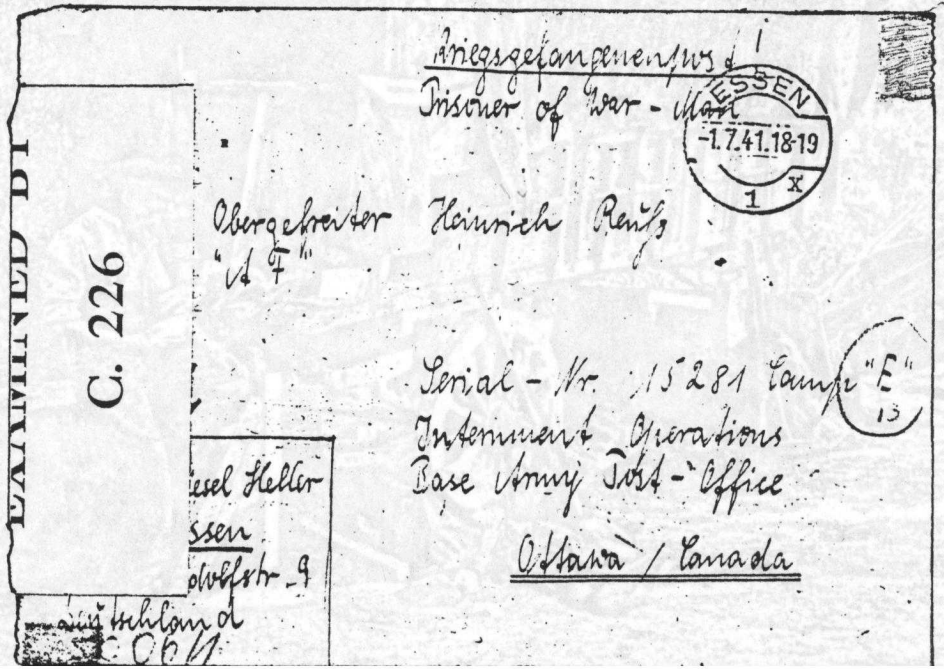 Kriegsgefangenenpost
Prisoner of War - Mail
ESSEN
-1.7.41.18-19
1 x
Obergefreiter Heinrich Reuß
"A F"
EXAMINED BY
C. 226
Serial - Nr. 15281 Camp "E"
13
Internment Operations
Base Army Post - Office
Ottawa / Canada
iesel Heller
ssen
dolfstr. 9
Deutschland